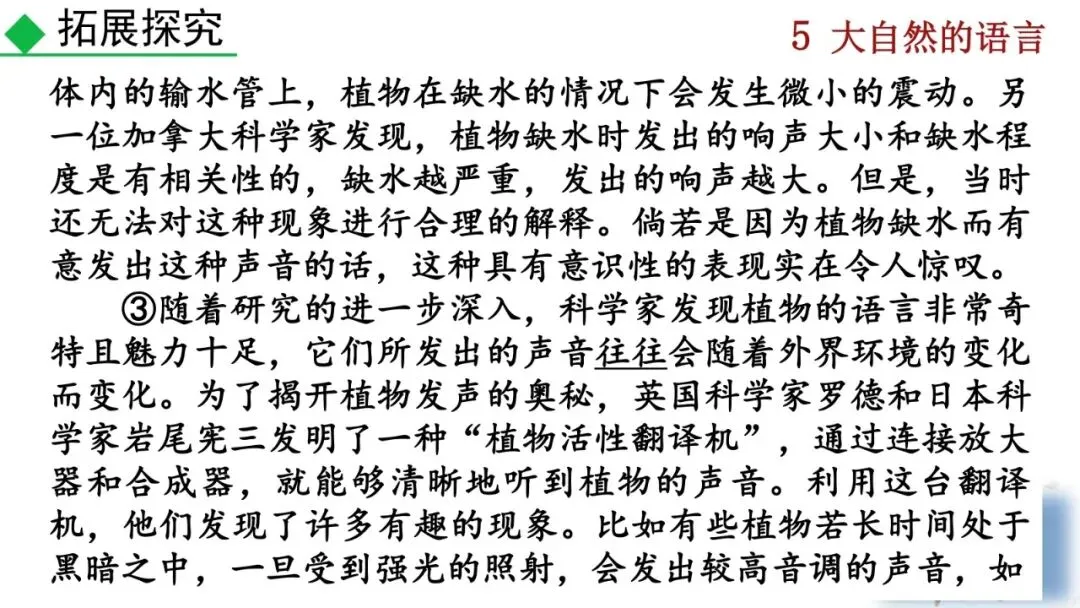 拓展探究
5 大自然的语言
体内的输水管上，植物在缺水的情况下会发生微小的震动。另
一位加拿大科学家发现，植物缺水时发出的响声大小和缺水程
度是有相关性的，缺水越严重，发出的响声越大。但是，当时
还无法对这种现象进行合理的解释。倘若是因为植物缺水而有
意发出这种声音的话，这种具有意识性的表现实在令人惊叹。
③随着研究的进一步深入，科学家发现植物的语言非常奇
特且魅力十足，它们所发出的声音往往会随着外界环境的变化
而变化。为了揭开植物发声的奥秘，英国科学家罗德和日本科
学家岩尾宪三发明了一种“植物活性翻译机”，通过连接放大
器和合成器，就能够清晰地听到植物的声音。利用这台翻译
机，他们发现了许多有趣的现象。比如有些植物若长时间处于
黑暗之中，一旦受到强光的照射，会发出较高音调的声音，如